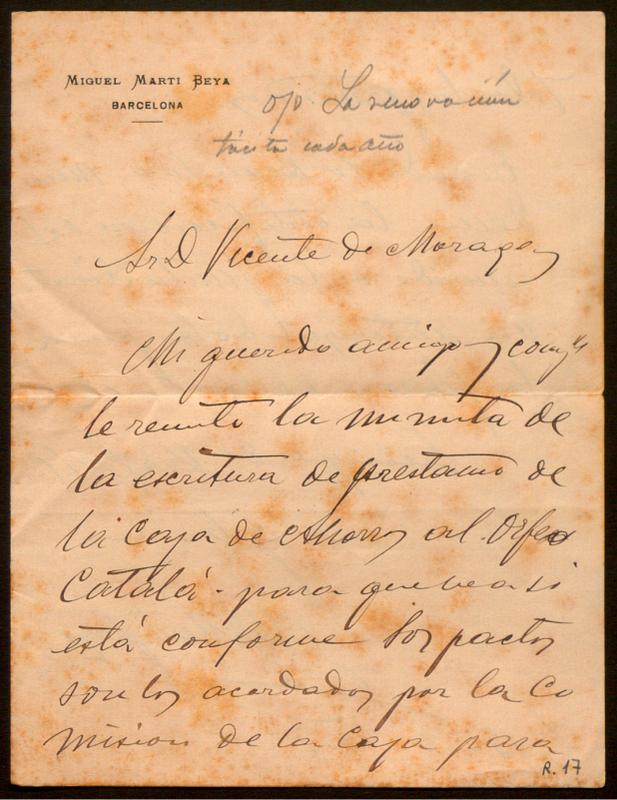 MIGUEL MARTI BEYA
BARCELONA
ojo. La renovación
tácita cada año
Sr D Vicente de Moragas
Mi querido amigo y comp
le remito la minuta de
la escritura de prestamo de
la Caja de Ahorros al Orfeo
Catalá - para que vea si
está conforme los pactos
son los acordados por la Co
mision de la Caja para
R. 17